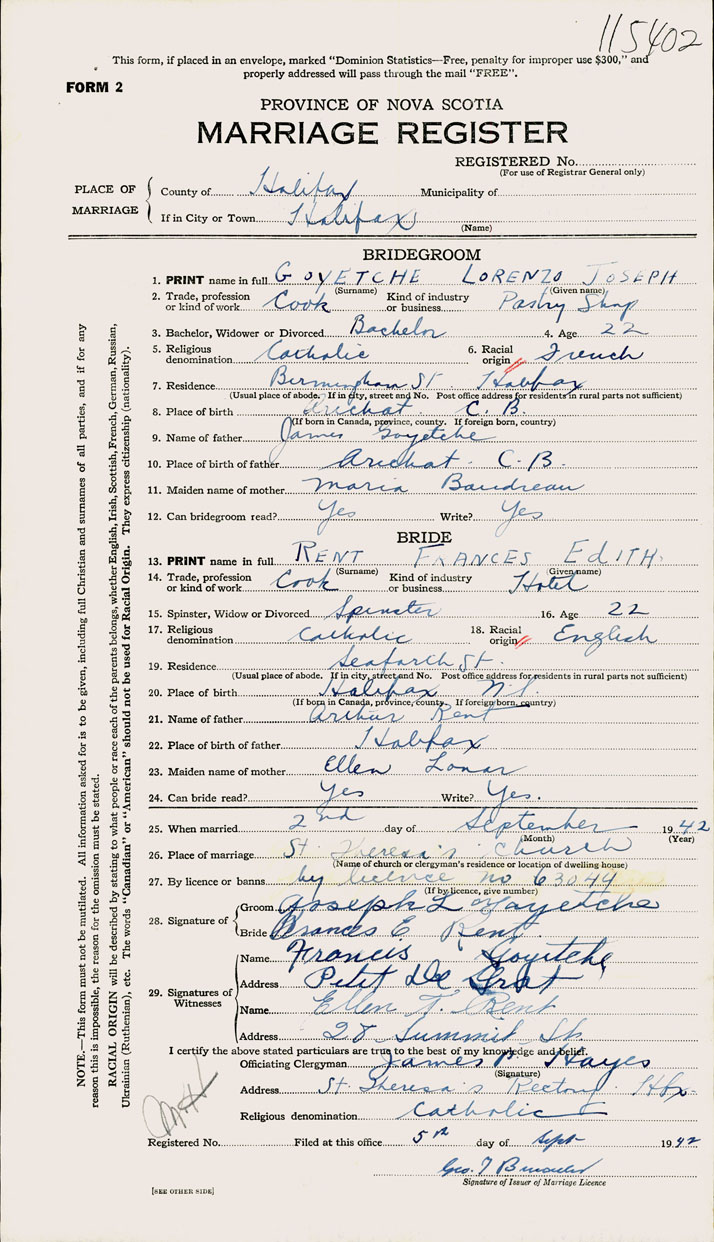 115402
This form, if placed in an envelope, marked "Dominion Statistics—Free, penalty for improper use $300," and
properly addressed will pass through the mail "FREE".
FORM 2
PROVINCE OF NOVA SCOTIA
MARRIAGE REGISTER
REGISTERED No.
(For use of Registrar General only)
PLACE OF MARRIAGE
County of Halifax Municipality of
If in City or Town Halifax
(Name)
BRIDEGROOM
1. PRINT name in full GOYETCHE LORENZO JOSEPH
(Surname) (Given name)
2. Trade, profession or kind of work Cook Kind of industry or business Pastry Shop
3. Bachelor, Widower or Divorced Bachelor 4. Age 22
5. Religious denomination Catholic 6. Racial origin French
7. Residence Birmingham St. Halifax
(Usual place of abode. If in city, street and No. Post office address for residents in rural parts not sufficient)
8. Place of birth Arichat C. B.
(If born in Canada, province, county. If foreign born, country)
9. Name of father James Goyetche
10. Place of birth of father Arichat C. B.
11. Maiden name of mother Maria Boudreau
12. Can bridegroom read? Yes Write? Yes
BRIDE
13. PRINT name in full RENT FRANCES EDITH
(Surname) (Given name)
14. Trade, profession or kind of work Cook Kind of industry or business Hotel
15. Spinster, Widow or Divorced Spinster 16. Age 22
17. Religious denomination Catholic 18. Racial origin English
19. Residence Seaforth St.
(Usual place of abode. If in city, street and No. Post office address for residents in rural parts not sufficient)
20. Place of birth Halifax N.S.
(If born in Canada, province, county. If foreign born, country)
21. Name of father Arthur Rent
22. Place of birth of father Halifax
23. Maiden name of mother Ellen
24. Can bride read? Yes Write? Yes.
25. When married 2nd day of September 1942
(Month) (Year)
26. Place of marriage St. Theresa's Church
(Name of church or clergyman's residence or location of dwelling house)
27. By licence or banns by licence no 63044
(If by licence, give number)
28. Signature of
Groom Joseph L Goyetche
Bride Frances E Rent.
29. Signatures of Witnesses
Name Francis Goyetche
Address Petit De Grat
Name Ellen T. Rent
Address 28 Summit St.
I certify the above stated particulars are true to the best of my knowledge and belief.
Officiating Clergyman James Hayes
(Signature)
Address St. Theresa's Rectory Hfx
Religious denomination Catholic
Registered No. Filed at this office 5th day of Sept 1942
Geo. T
Signature of Issuer of Marriage Licence
[SEE OTHER SIDE]
NOTE.—This form must not be mutilated. All information asked for is to be given, including full Christian and surnames of all parties, and if for any
reason this is impossible, the reason for the omission must be stated.
RACIAL ORIGIN will be described by stating to what people or race each of the parents belongs, whether English, Irish, Scottish, French, German, Russian,
Ukrainian (Ruthenian), etc. The words "Canadian" or "American" should not be used for Racial Origin. They express citizenship (nationality).